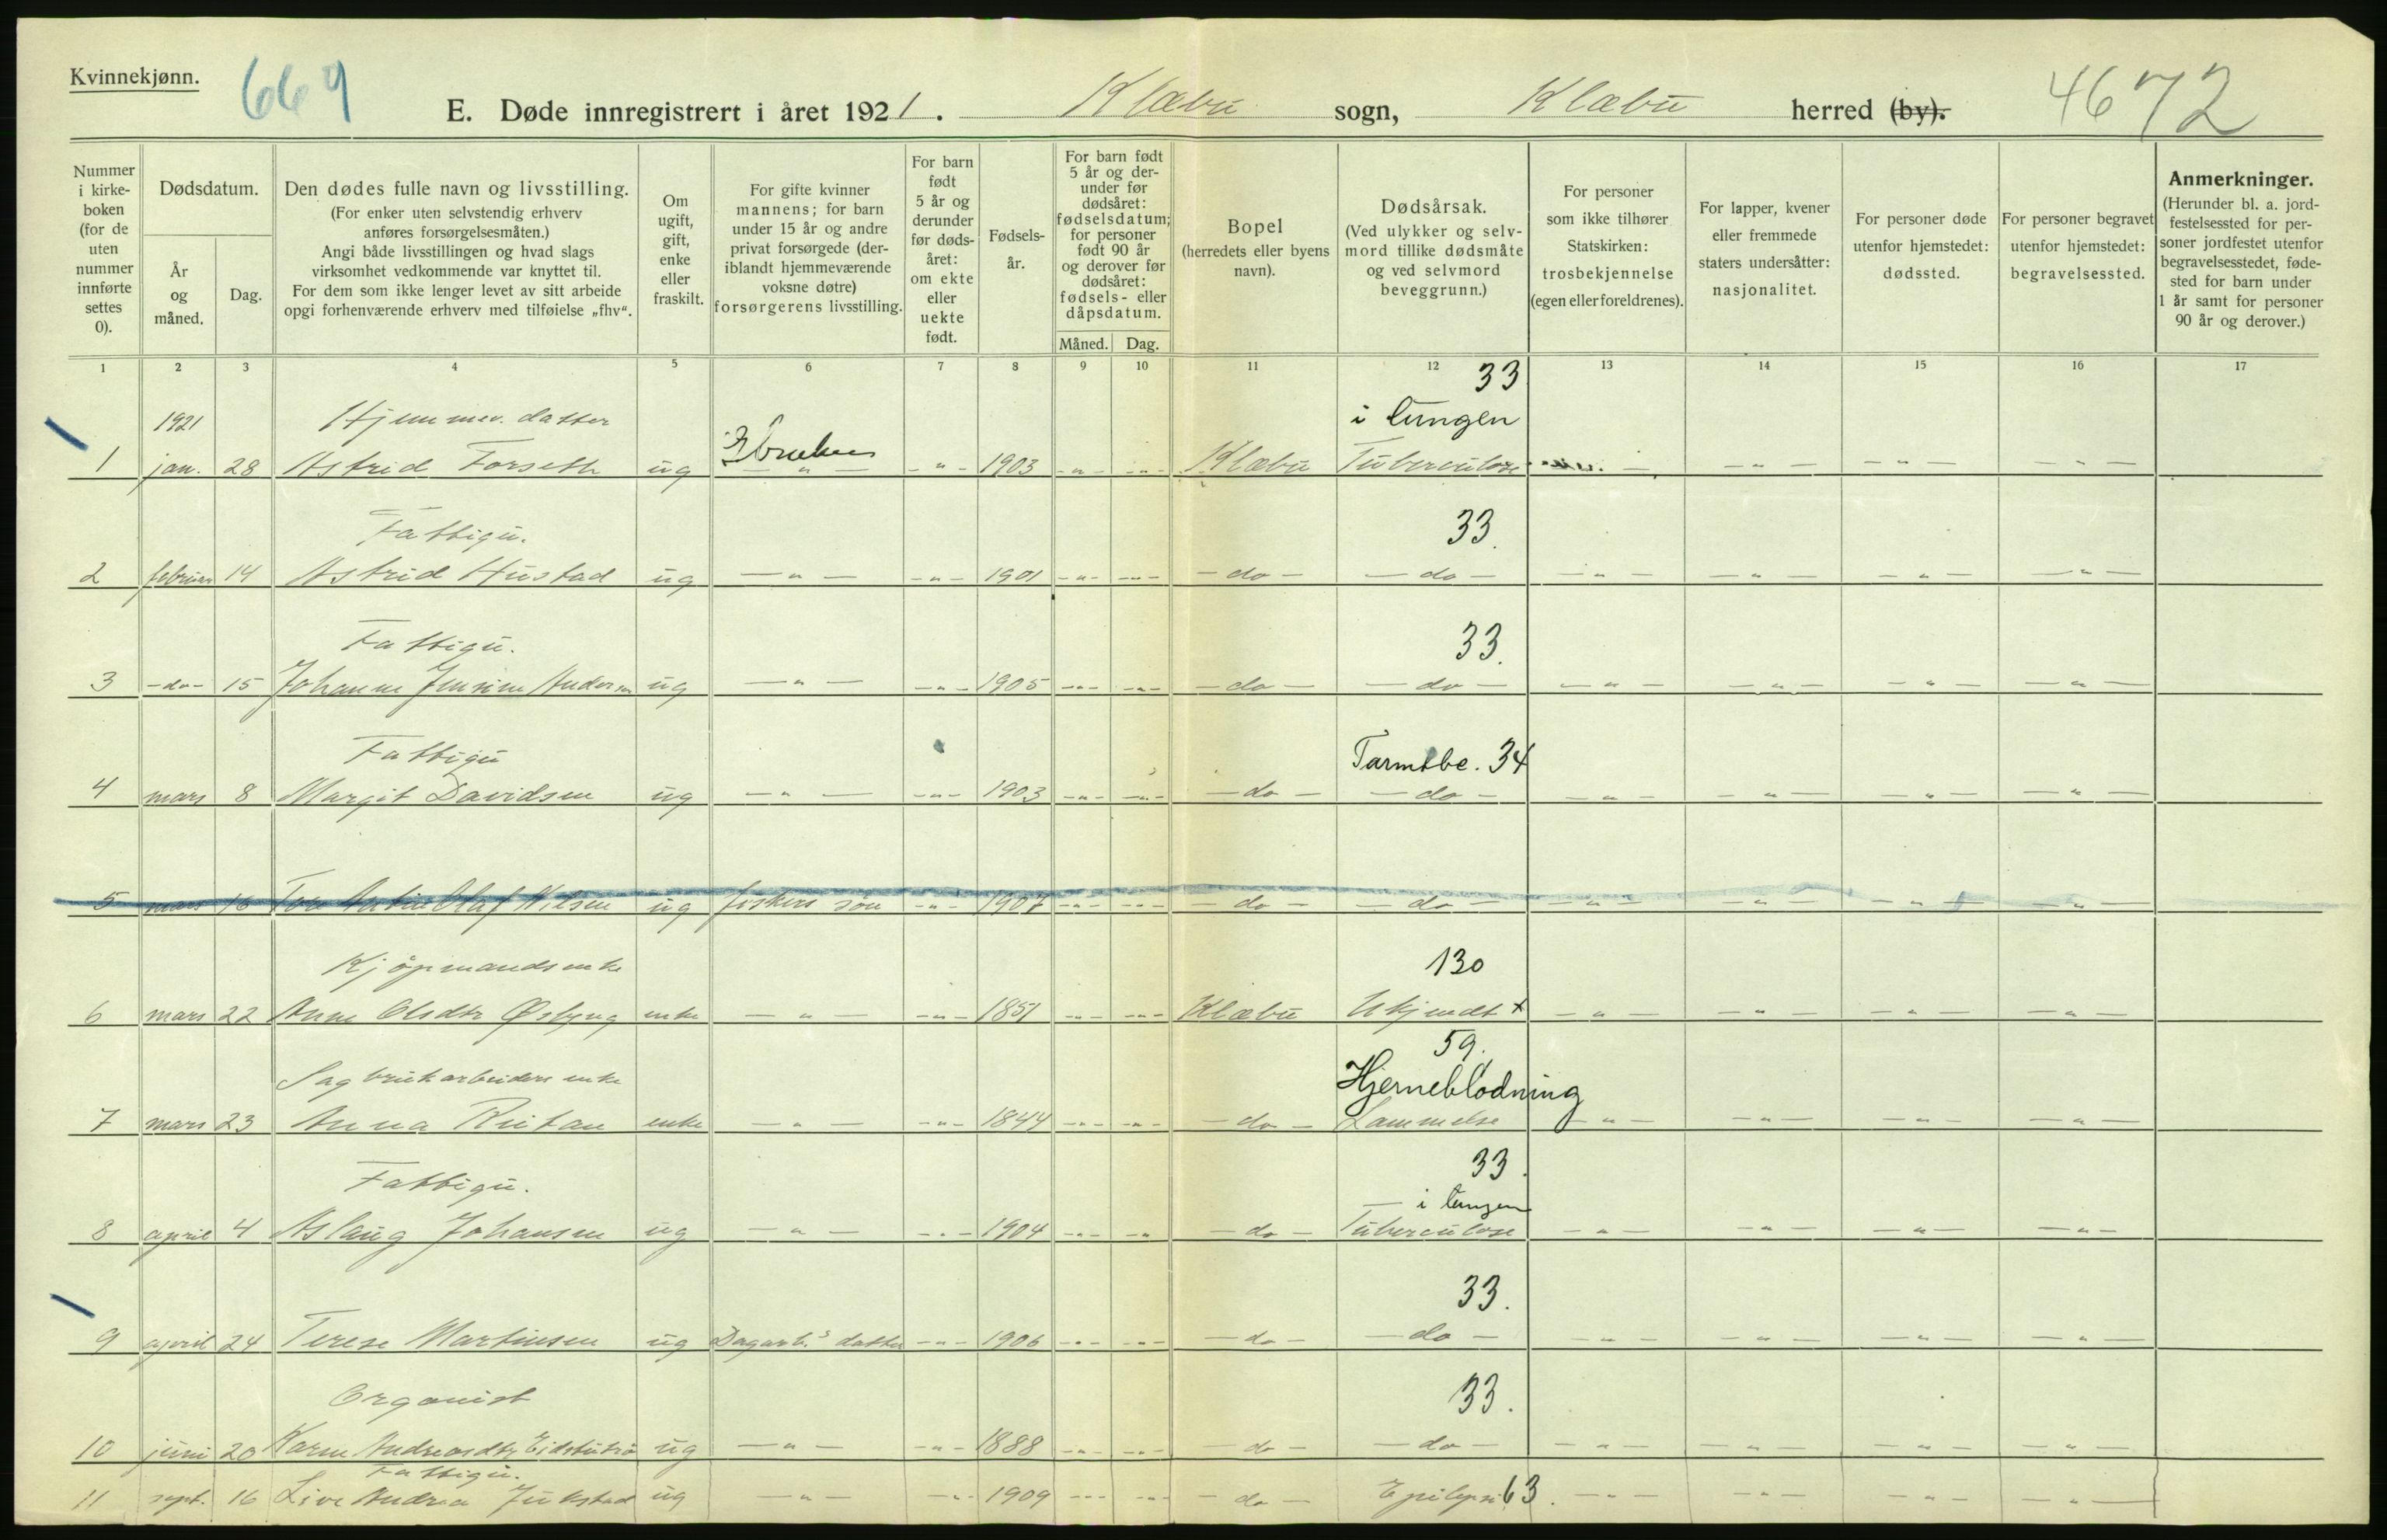 Kvinnekjønn.
669
E. Døde innregistrert i året 1921. Klæbu sogn, Klæbu herred (by).
4672
Nummer i kirke-boken (for de uten nummer innførte settes 0).
Dødsdatum.
År og måned.
Dag.
Den dødes fulle navn og livsstilling.
(For enker uten selvstendig erhverv anføres forsørgelsesmåten.)
Angi både livsstillingen og hvad slags virksomhet vedkommende var knyttet til.
For dem som ikke lenger levet av sitt arbeide opgi forhenværende erhverv med tilføielse „fhv“.
Om ugift, gift, enke eller fraskilt.
For gifte kvinner mannens; for barn under 15 år og andre privat forsørgede (deriblandt hjemmeværende voksne døtre) forsørgerens livsstilling.
For barn født 5 år og derunder før dødsåret: om ekte eller uekte født.
Fødselsår.
For barn født 5 år og derunder før dødsåret: fødselsdatum; for personer født 90 år og derover før dødsåret: fødsels- eller dåpsdatum.
Måned. Dag.
Bopel (herredets eller byens navn).
Dødsårsak.
(Ved ulykker og selvmord tillike dødsmåte og ved selvmord beveggrunn.)
For personer som ikke tilhører Statskirken: trosbekjennelse (egen eller foreldrenes).
For lapper, kvener eller fremmede staters undersåtter: nasjonalitet.
For personer døde utenfor hjemstedet: dødssted.
For personer begravet utenfor hjemstedet: begravelsessted.
Anmerkninger.
(Herunder bl. a. jordfestelsessted for personer jordfestet utenfor begravelsesstedet, fødested for barn under 1 år samt for personer 90 år og derover.)
1 2 3 4 5 6 7 8 9 10 11 12 13 14 15 16 17
33
1921 Hjemmev. datter i lungen
1 jan. 28 Astrid Forseth ug - " - - " - 1903 - " - - " - Klæbu Tuberculose - " - - " - - " -
Fattigu. 33
2 februar 14 Astrid Hustad ug - " - - " - 1901 - " - - " - - do - - do - - " - - " - - " - - " -
Fattigu. 33
3 - do - 15 Johanne Jensine Andersen ug - " - - " - 1905 - " - - " - - do - - do - - " - - " - - " - - " -
Fattigu Tarmtbc. 34
4 mars 8 Margit Davidsen ug - " - - " - 1903 - " - - " - - do - - do - - " - - " - - " - - " -
5 mars 16 Olaf Nilsen ug fiskers søn - " - 1907 - " - - " - - do - - do - - " - - " - - " - - " -
Kjøpmandsenke 130
6 mars 22 Anne Olsdtr enke - " - - " - 1851 - " - - " - Klæbu Ukjendt x - " - - " - - " - - " -
59.
Sagbrukarbeiders enke Hjerneblødning
7 mars 23 Anna Rutan enke - " - - " - 1844 - " - - " - - do - Lammelse - " - - " - - " - - " -
33.
Fattigu. - i lungen
8 april 4 Aslaug Johansen ug - " - - " - 1904 - " - - " - - do - Tuberculose - " - - " - - " - - " -
33.
9 april 24 Terese Martinsen ug Dagarb.s datter - " - 1906 - " - - " - - do - - do - - " - - " - - " - - " -
Organist 33.
10 juni 20 Karen Andreasdtr ug - " - - " - 1888 - " - - " - - do - - do - - " - - " - - " - - " -
Fattigu.
11 sept. 16 Live Andrea ug - " - - " - 1909 - " - - " - - do - Epilepsi 63. - " - - " - - " - - " -